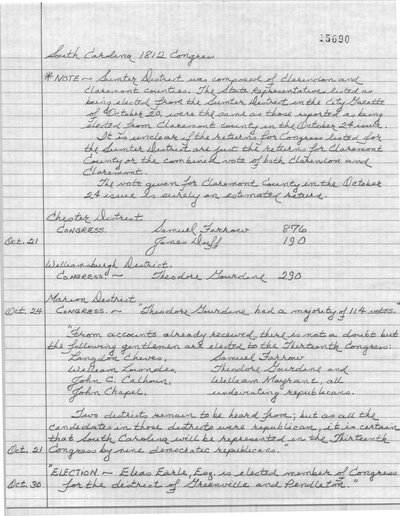 15690
South Carolina 1812 Congress
* NOTE ~ Sumter District was composed of Clarendon and
Claremont counties. The State Representatives listed as
being elected from the Sumter District in the City Gazette
of October 20, were the same as those reported as being
elected from Claremont county in the October 24 issue.
It is unclear if the returns for Congress listed for
the Sumter District are just the returns for Claremont
County or the combined vote of both Clarendon and
Claremont.
The vote given for Claremont County in the October
24 issue is surely an estimated return.
Chester District
CONGRESS. Samuel Farrow 876
Oct. 21 James Duff 190
Williamsburgh District.
CONGRESS. ~ Theodore Gourdine 290
Marion District
Oct. 24 CONGRESS. ~ "Theodore Gourdine had a majority of 114 votes."
"From accounts already received, there is not a doubt but
the following gentlemen are elected to the Thirteenth Congress:
Langdon Cheves, Samuel Farrow
William Lowndes, Theodore Gourdine and
John C. Calhoun, William Mayrant, all
John Chapel, undeviating republicans.
Two districts remain to be heard from; but as all the
candidates in those districts were republican, it is certain
that South Carolina will be represented in the Thirteenth
Oct. 21 Congress by nine democratic republicans."
"ELECTION. ~ Elias Earle, Esq. is elected member of Congress
Oct. 30 for the district of Greenville and Pendleton."